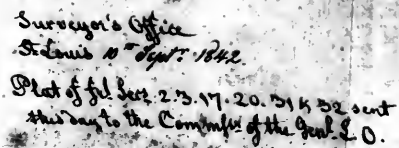 Surveyor's Office
St. Louis 10th Septr. 1842.
Plat of frl. Secs. 2.3.17.20.31 & 32 sent
this day to the Commssr. of the Genl. L. O.